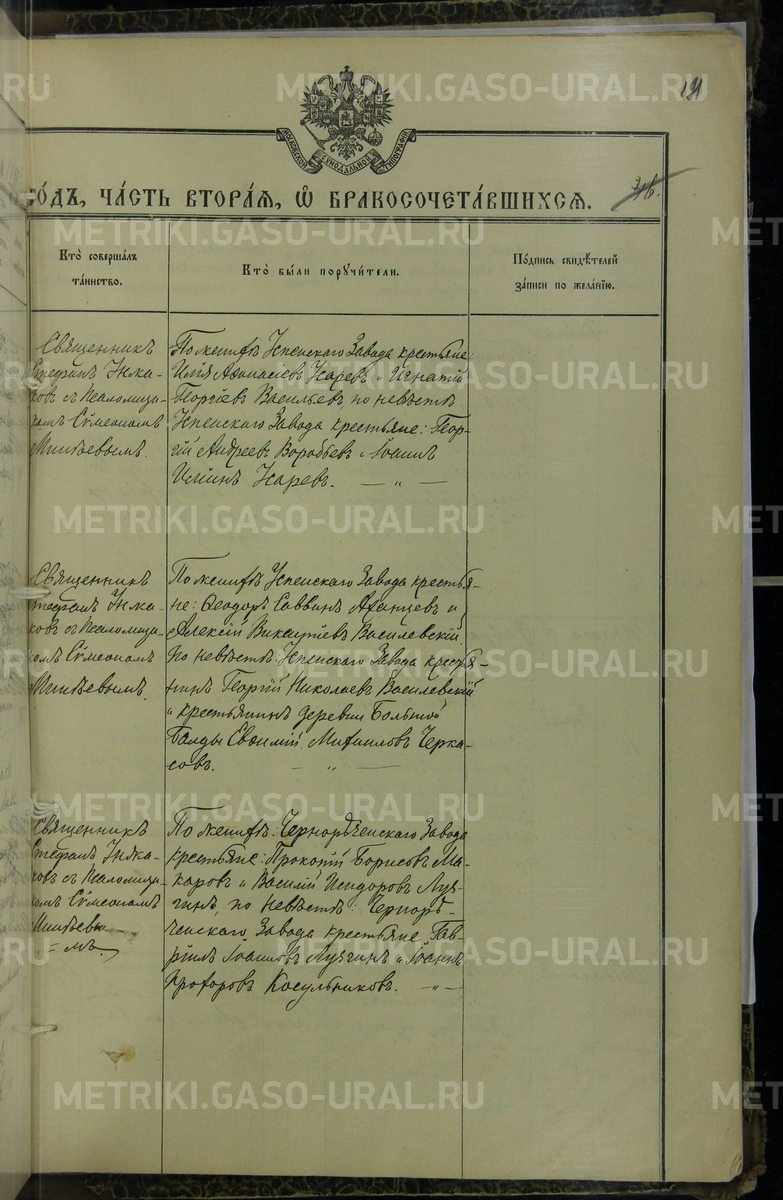 191
МОСКОВСКОЙ СѴНОДАЛЬНОЙ ТИПОГРАФІИ
ГО́ДЪ, ЧА́СТЬ ВТОРА́Я, Ѡ БРАКОСОЧЕТА́ВШИХСЯ.
Кто̀ соверша́лъ
та́инство.
Кто̀ бы́ли поручи́тели.
По́дпись свидѣ́телей
за́писи по жела́нїю.
Священникъ
Стефанъ Инжа-
ковъ съ Псаломщи-
комъ Сѵмеономъ
По женихѣ Успенскаго Завода крестьяне:
Илія Аѳанасіевъ Усаревъ и Игнатій
Георгіевъ Васильевъ, по невѣстѣ
Успенскаго Завода крестьяне: Геор-
гій Андреевъ Воробьевъ и Іоаннъ
Илiинъ Усаревъ. — „ —
Священникъ
Стефанъ Инжа-
ковъ съ Псаломщи-
комъ Сѵмеономъ
По женихѣ Успенскаго Завода крестья-
не: Ѳеодоръ Саввинъ и
Алексій Викентіевъ Василевскій.
По невѣстѣ: Успенскаго Завода крестья-
нинъ Георгій Николаевъ Василевскій
и крестьянинъ деревни Большой
Балды Евѳимій Михаиловъ Черка-
совъ. — „ —
Священникъ
Стефанъ Инжа-
ковъ съ Псаломщи-
комъ Сѵмеономъ
По женихѣ: Чернорѣченскаго Завода
крестьяне: Прокопій Борисовъ Ма-
каровъ и Василій Исидоровъ Луз-
гинъ, по невѣстѣ: Чернорѣ-
ченскаго Завода крестьяне: Гав-
ріилъ Іоанновъ Лузгинъ и Іоаннъ
Прохоровъ Косульниковъ. — „ —
METRIKI.GASO-URAL.RU